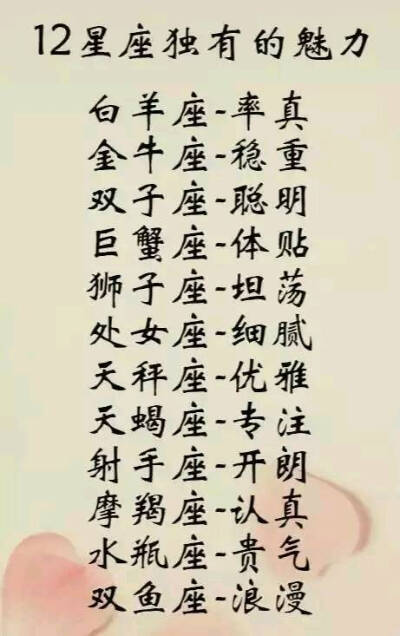 12星座独有的魅力
白羊座-率真
金牛座-稳重
双子座-聪明
巨蟹座-体贴
狮子座-坦荡
处女座-细腻
天秤座-优雅
天蝎座-专注
射手座-开朗
摩羯座-认真
水瓶座-贵气
双鱼座-浪漫